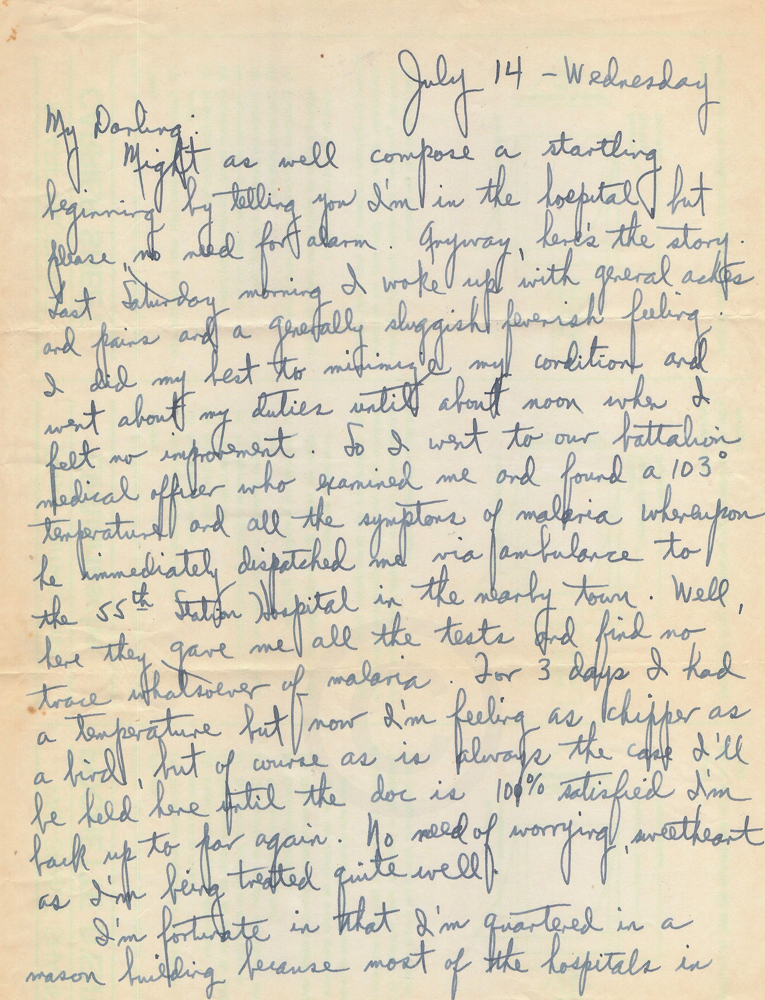 July 14 - Wednesday
My Darling:
Might as well compose a startling
beginning by telling you I'm in the hospital but
please, no need for alarm. Anyway, here's the story.
Last Saturday morning I woke up with general aches
and pains and a generally sluggish feverish feeling.
I did my best to minimize my condition and
went about my duties until about noon when I
felt no improvement. So I went to our battalion
medical officer who examined me and found a 103°
temperature and all the symptons of malaria whereupon
he immediately dispatched me via ambulance to
the 55th Station Hospital in the nearby town. Well,
here they gave me all the tests and find no
trace whatsoever of malaria. For 3 days I had
a temperature but now I'm feeling as chipper as
a bird, but of course as is always the case I'll
be held here until the doc is 100% satisfied I'm
back up to par again. No need of worrying, sweetheart
as I'm being treated quite well.
I'm fortunate in that I'm quartered in a
mason building because most of the hospitals in